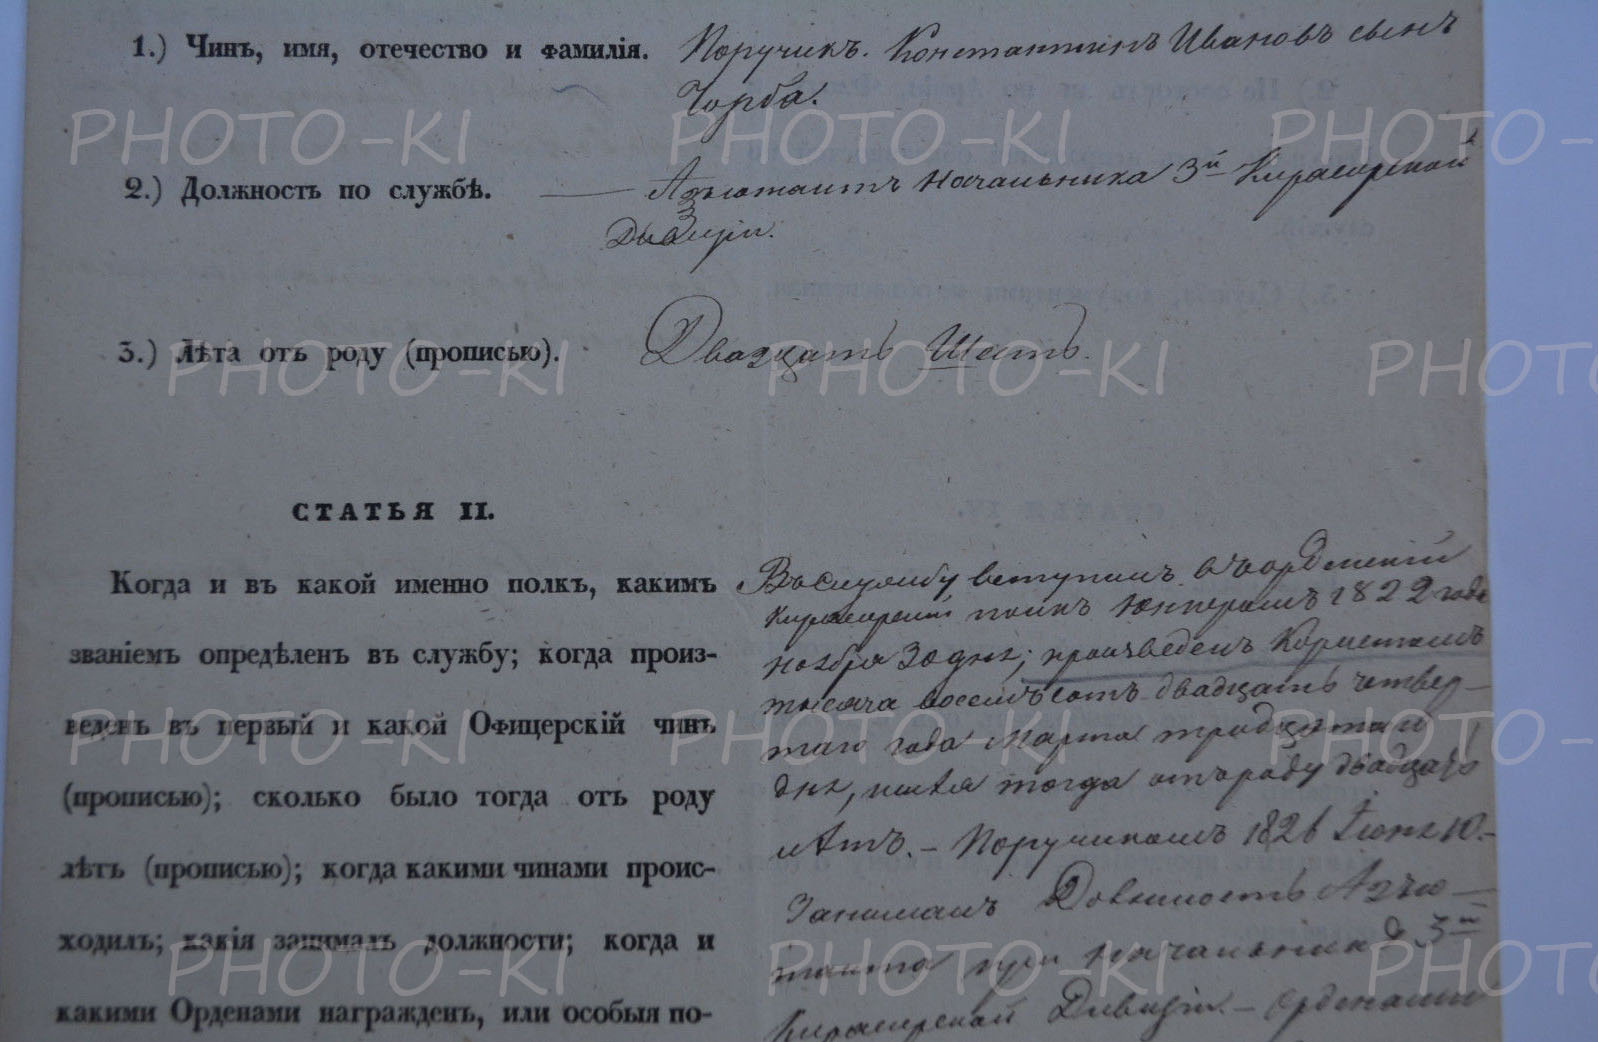 1.) Чинъ, имя, отечество и фамилія. Поручикъ. Константинъ Ивановъ сынъ
Чорба.
2.) Должность по службѣ. Адъютантъ Начальника 3й Кирасирской
Дивизіи.
3.) Лѣта отъ роду (прописью). Двадцать Шесть.
СТАТЬЯ II.
Когда и въ какой именно полкъ, какимъ
званіемъ опредѣленъ въ службу; когда произ-
веденъ въ первый и какой Офицерскій чинъ
(прописью); сколько было тогда отъ роду
лѣтъ (прописью); когда какими чинами проис-
ходилъ; какія занималъ должности; когда и
какими Орденами награжденъ, или особыя по-
Въ Службу вступилъ въ орденскій
Кирасирскій полкъ Юнкеромъ 1822 года
ноября 30 дня; произведенъ Корнетомъ
тысяча восемьсотъ двадцать четвер-
таго года Марта тридцатаго
дня, имѣя тогда отъ роду двадцать
лѣтъ. – Поручикомъ 1826 Іюня 10. –
Занималъ Должность Адъю-
танта при Начальникѣ 3й
Кирасирской Дивизіи. – Орденами
PHOTO-KI PHOTO-KI PHOTO-
PHOTO-KI PHOTO-KI PHOTO-
PHOTO-KI PHOTO-KI PHOTO-
PHOTO-KI PHOTO-KI PHOTO-